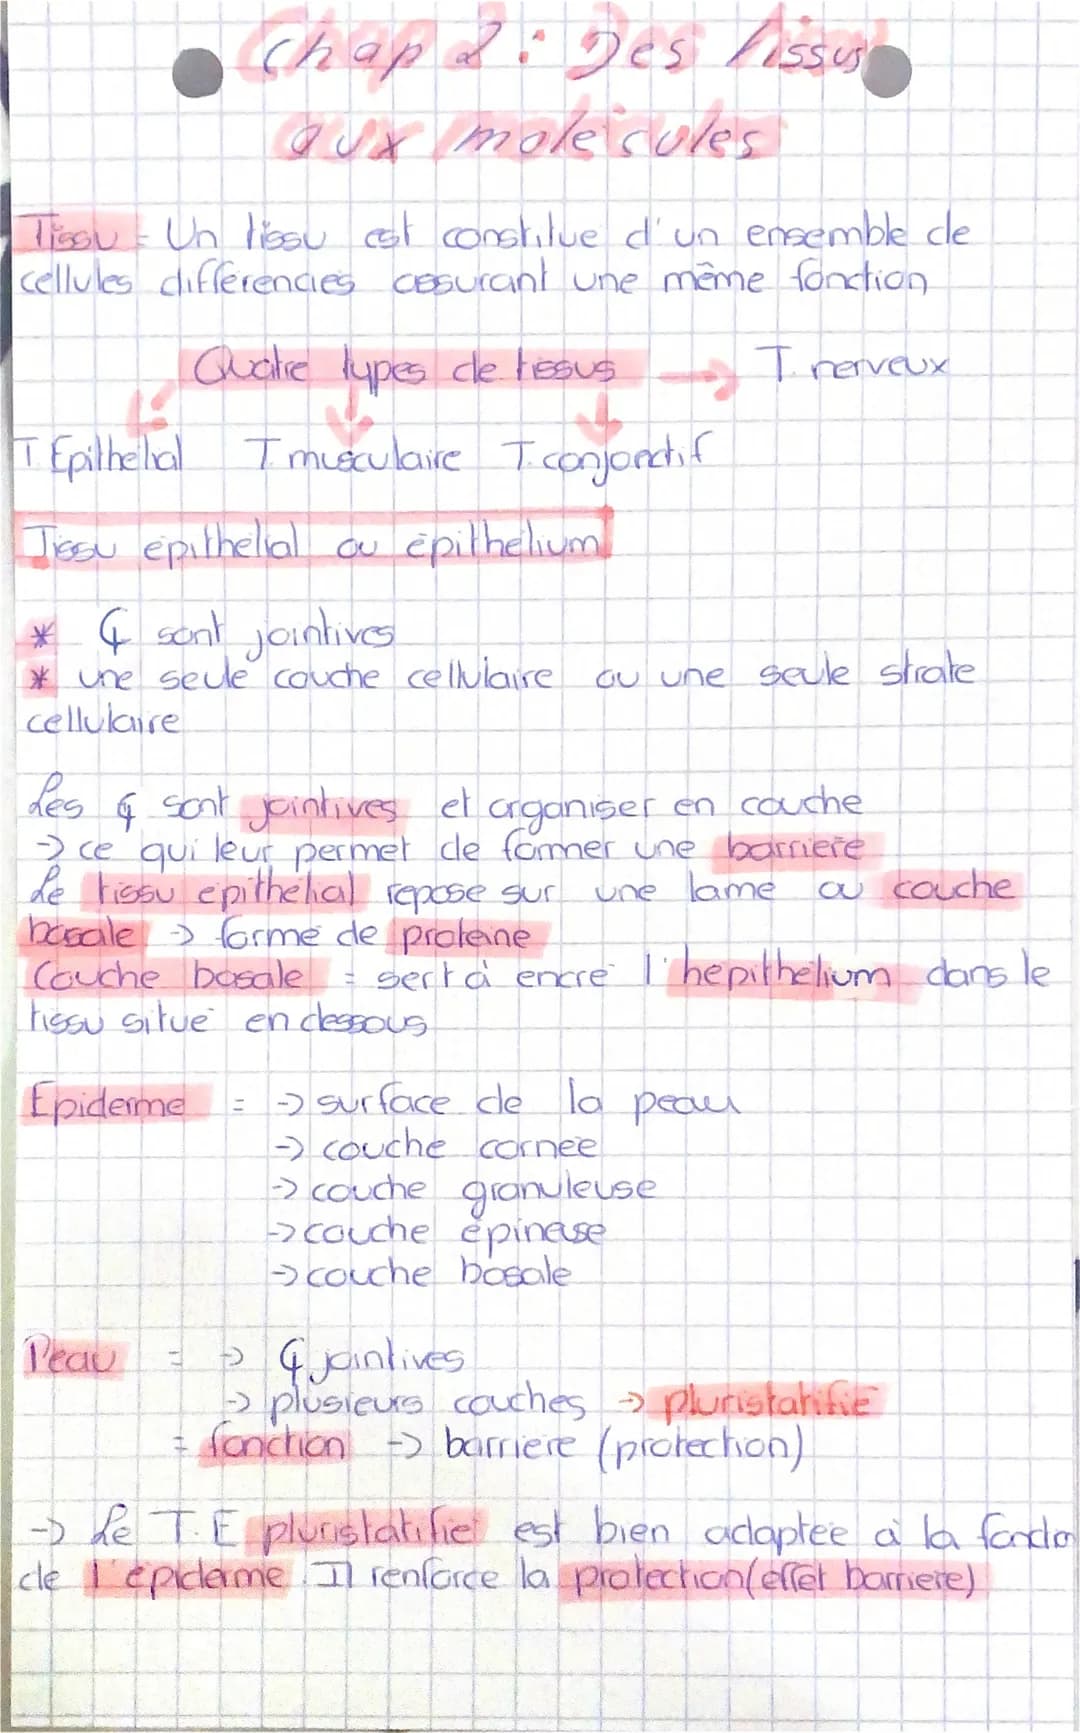 Chap 2 : Des tissus
aux molécules
Tissu = Un tissu est constitue d'un ensemble de
cellules différencies assurant une même fonction
Quatre types de tissus → T. nerveux
T Epithelial T musculaire T. conjonctif
Tissu épithelial ou épithelium
* ₵ sont jointives
* une seule couche cellulaire ou une seule strate
cellulaire
Les ₵ sont jointives et organiser en couche
→ ce qui leur permet de former une barriere
Le tissu epithélial repose sur une lame ou couche
basale → forme de proteine
Couche basale = sert à encré l'hepithélium dans le
tissu situe en dessous
Epiderme = → surface de la peau
→ couche cornee
→ couche granuleuse
→ couche épineuse
→ couche basale
Peau = → ₵ jointives
→ plusieurs couches → pluristatifie
= fonction → barriere (protection)
→ Le T.E pluristatifie est bien adaptée à la fonctio
de l'épiderme. Il renforce la protection (effet barriere)